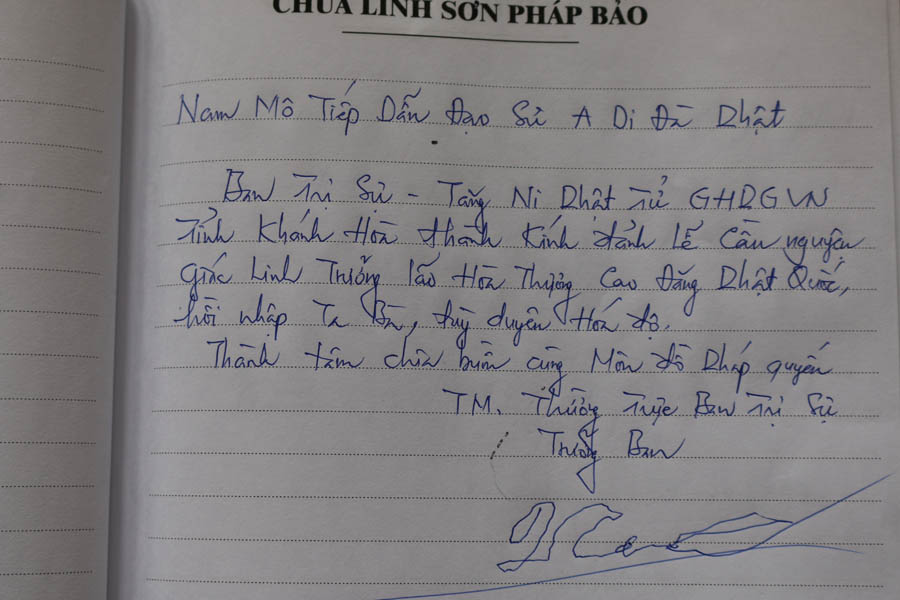 CHÙA LINH SƠN PHÁP BẢO
Nam Mô Tiếp Dẫn Đạo Sư A Di Đà Phật
Ban Trị Sự - Tăng Ni Phật Tử GHPGVN
Tỉnh Khánh Hòa thành kính đảnh lễ Cầu nguyện
Giác Linh Trưởng lão Hòa Thượng Cao Đăng Phật Quốc,
hồi nhập Ta Bà, tùy duyên Hóa độ.
Thành tâm chia buồn cùng Môn đồ Pháp quyến
TM. Thường Trực Ban Trị Sự
Trưởng Ban